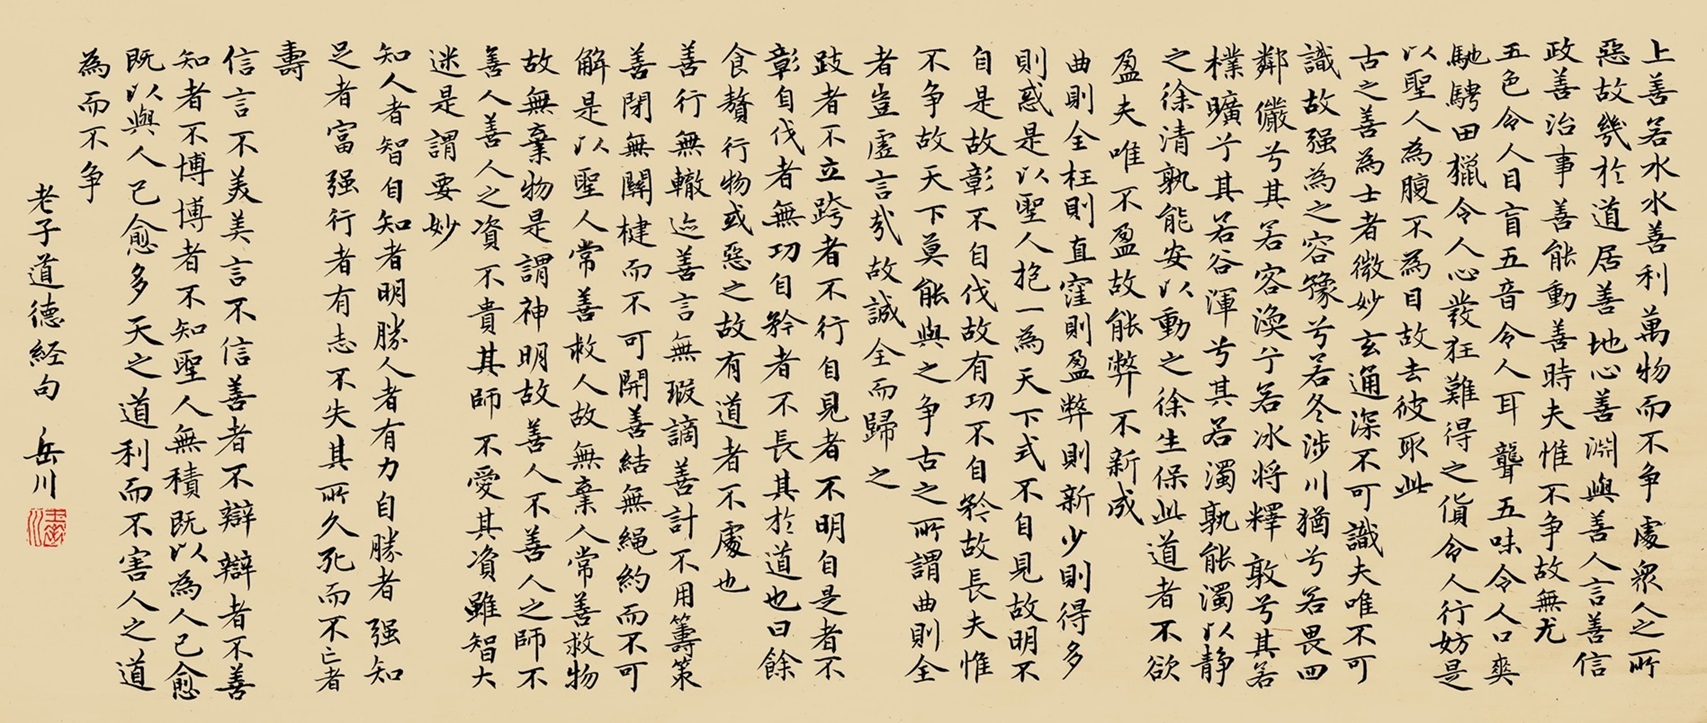 上善若水水善利萬物而不争處衆人之所
惡故幾於道居善地心善淵與善人言善信
政善治事善能動善時夫惟不争故無尤
五色令人目盲五音令人耳聾五味令人口爽
馳騁田獵令人心發狂難得之貨令人行妨是
以聖人為腹不為目故去彼取此
古之善為士者微妙玄通深不可識夫唯不可
識故强為之容豫兮若冬涉川猶兮若畏四
鄰儼兮其若容渙兮若冰将釋敦兮其若
樸曠兮其若谷渾兮其若濁孰能濁以静
之徐清孰能安以動之徐生保此道者不欲
盈夫唯不盈故能弊不新成
曲則全枉則直窪則盈弊則新少則得多
則惑是以聖人抱一為天下式不自見故明不
自是故彰不自伐故有功不自矜故長夫惟
不争故天下莫能與之争古之所謂曲則全
者豈虚言哉故誠全而歸之
跂者不立跨者不行自見者不明自是者不
彰自伐者無功自矜者不長其於道也曰餘
食贅行物或惡之故有道者不處也
善行無轍迹善言無瑕謫善計不用籌策
善閉無關楗而不可開善結無繩約而不可
解是以聖人常善救人故無棄人常善救物
故無棄物是謂神明故善人不善人之師不
善人善人之資不貴其師不愛其資雖智大
迷是謂要妙
知人者智自知者明勝人者有力自勝者强知
足者富强行者有志不失其所久死而不亡者
壽
信言不美美言不信善者不辯辯者不善
知者不博博者不知聖人無積既以為人己愈
既以與人己愈多天之道利而不害人之道
為而不争
老子道德經句 岳川